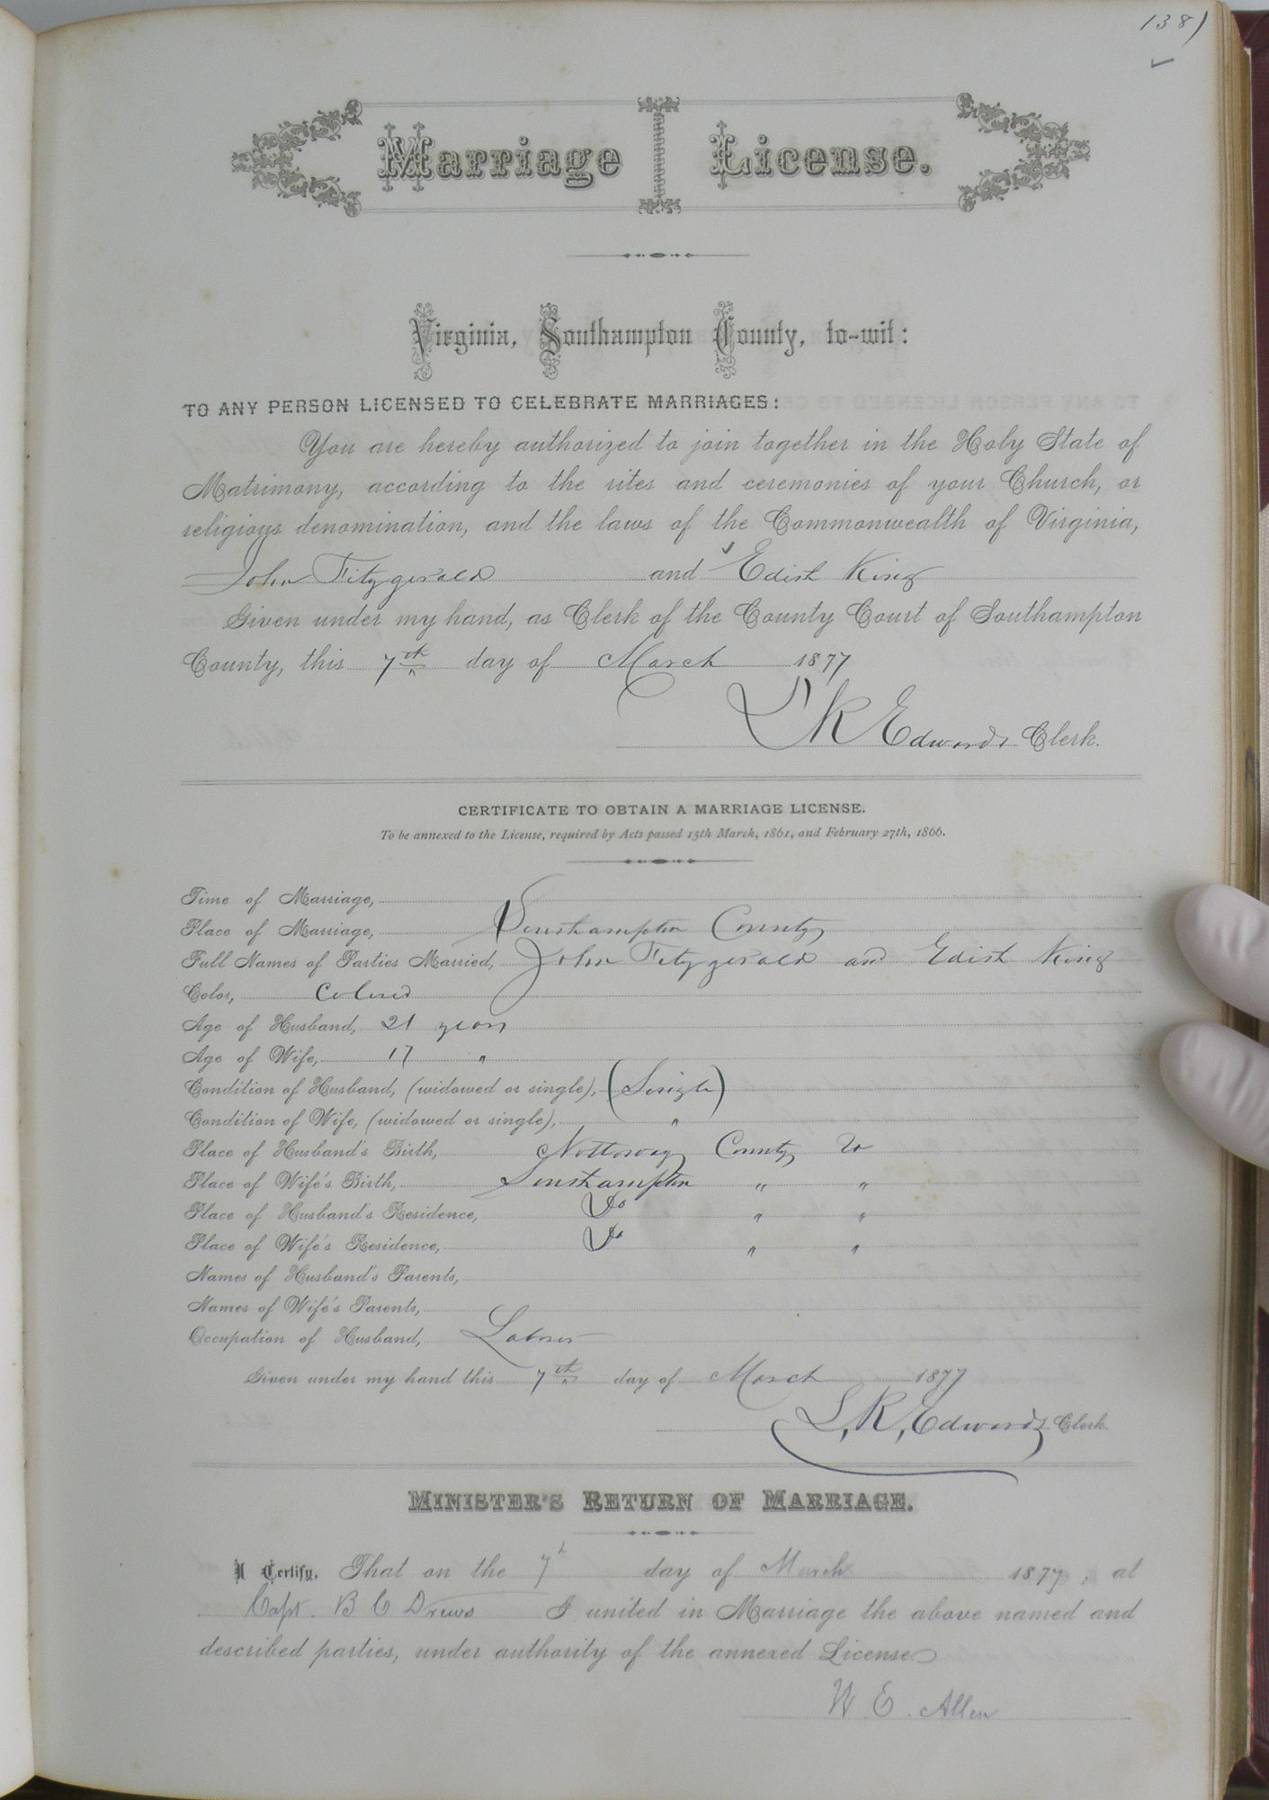 138)
Marriage License.
Virginia, Southampton County, to-wit:
TO ANY PERSON LICENSED TO CELEBRATE MARRIAGES:
You are hereby authorized to join together in the Holy State of
Matrimony, according to the rites and ceremonies of your Church, or
religious denomination, and the laws of the Commonwealth of Virginia,
John Fitzgerald and Edith King
Given under my hand, as Clerk of the County Court of Southampton
County, this 7th day of March 1877
L R Edwards Clerk.
CERTIFICATE TO OBTAIN A MARRIAGE LICENSE.
To be annexed to the License, required by Acts passed 15th March, 1861, and February 27th, 1866.
Time of Marriage,
Place of Marriage, Southampton County
Full Names of Parties Married, John Fitzgerald and Edith King
Color, Colored
Age of Husband, 21 years
Age of Wife, 17 "
Condition of Husband, (widowed or single), (Single)
Condition of Wife, (widowed or single), "
Place of Husband's Birth, Nottoway County Va
Place of Wife's Birth, Southampton " "
Place of Husband's Residence, Do " "
Place of Wife's Residence, Do " "
Names of Husband's Parents,
Names of Wife's Parents,
Occupation of Husband, Laborer
Given under my hand this 7th day of March 1877
L. R. Edwards Clerk.
MINISTER'S RETURN OF MARRIAGE.
I Certify, That on the 7th day of March 1877, at
Capt. B C Drews I united in Marriage the above named and
described parties, under authority of the annexed License
W. E. Allen